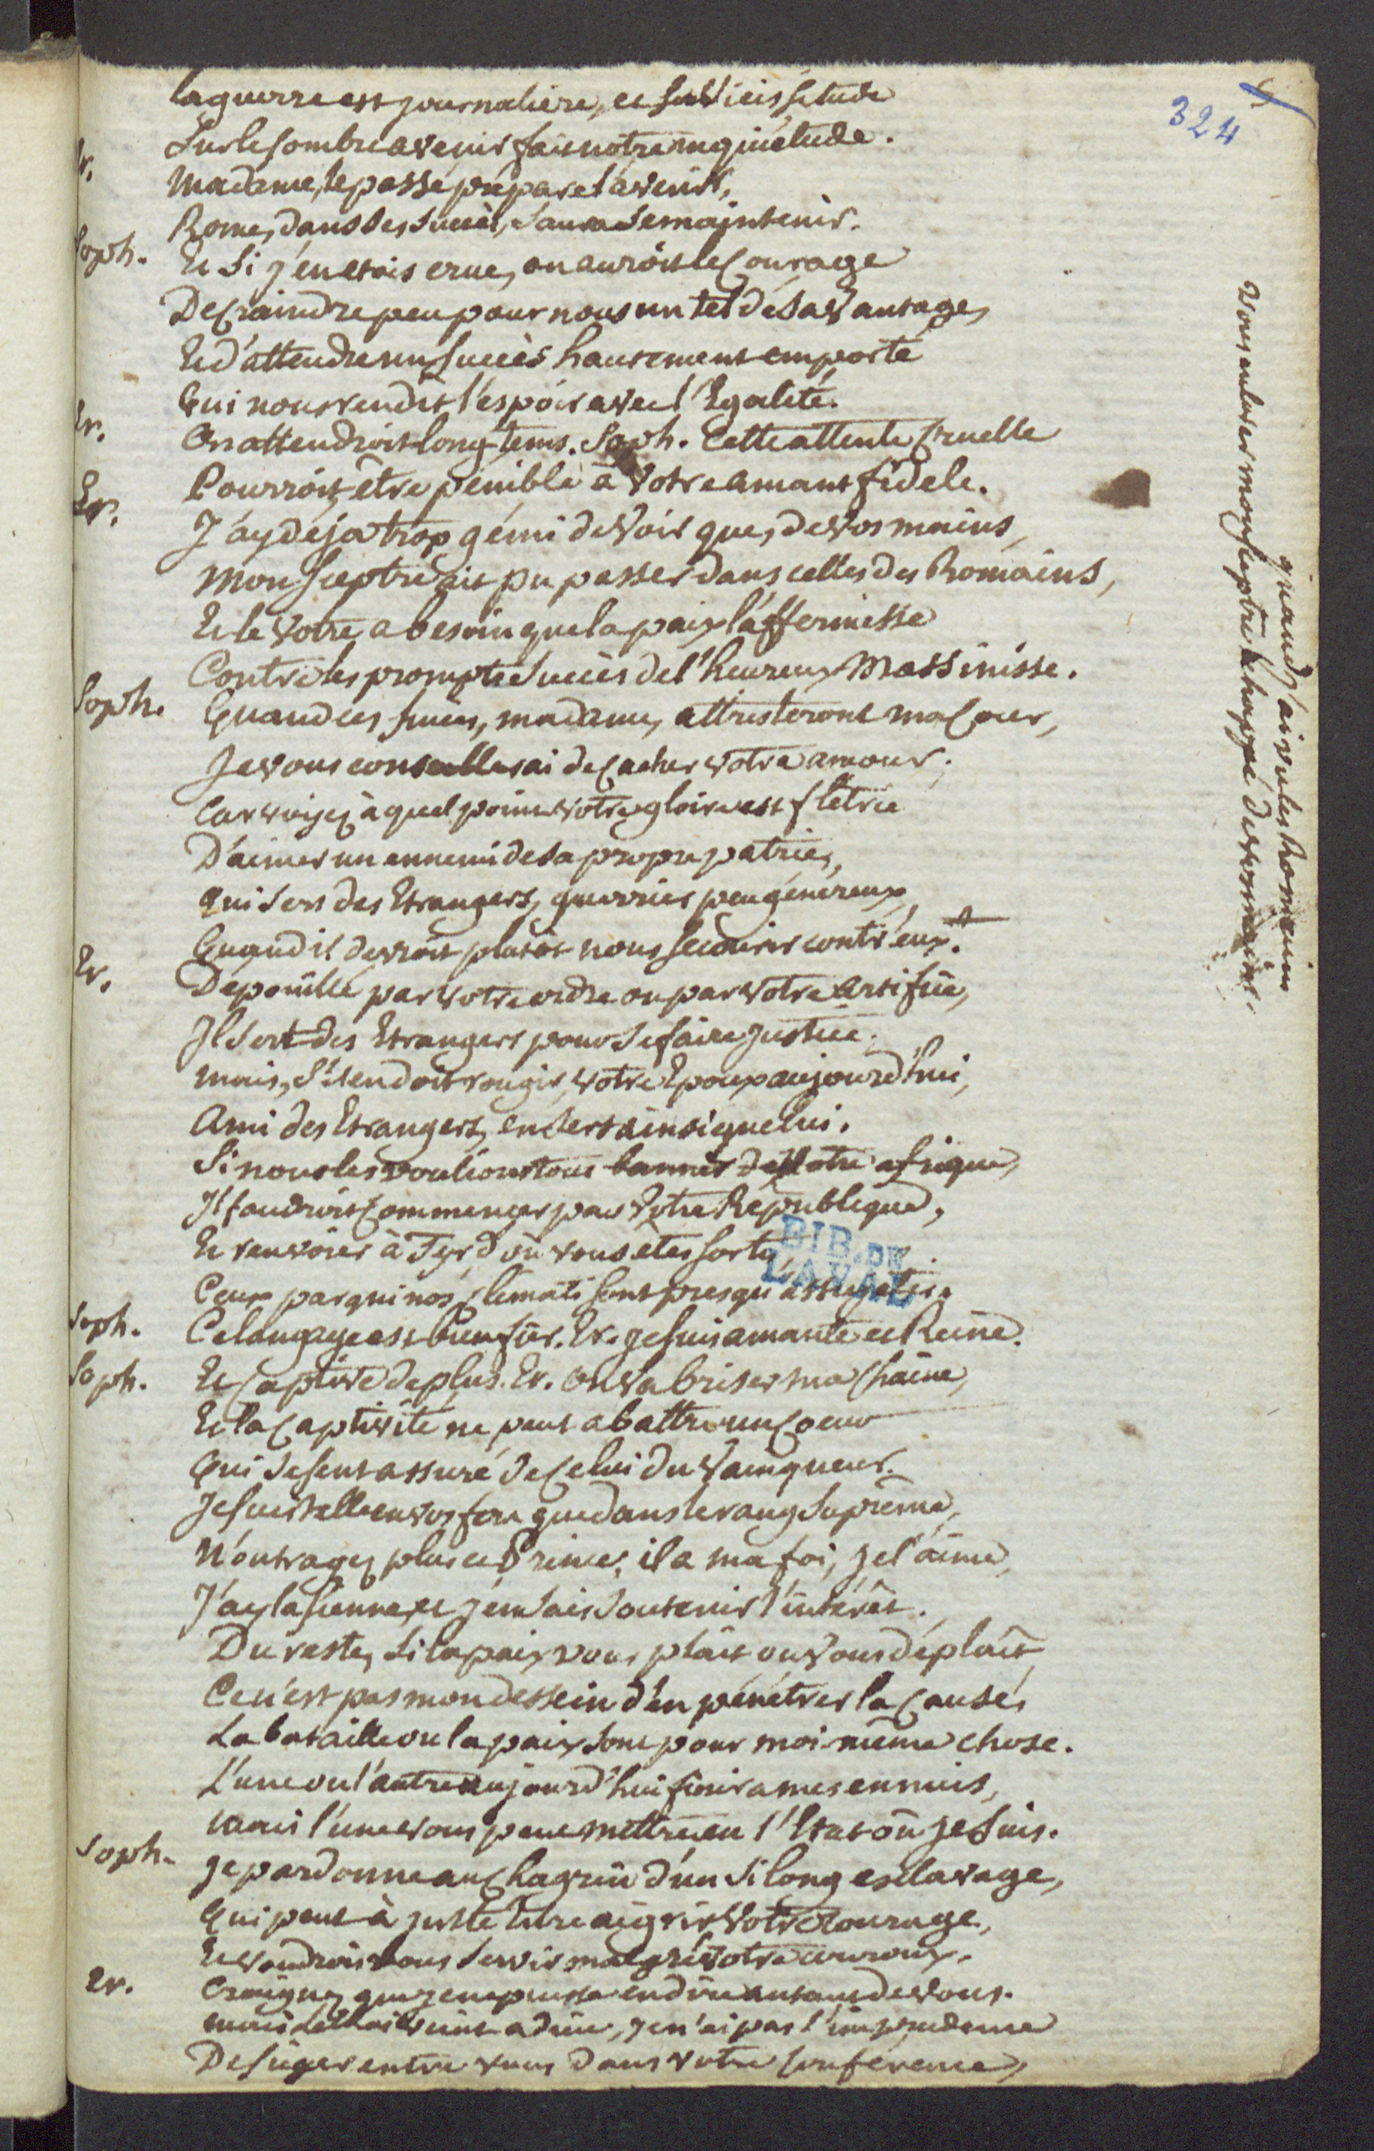 324
la guerre est journaliere, et sa vicissitude
Sur le sombre avenir fait notre inquiétude.
Er. Madame, le passé prépare l'avenir,
Rome, dans ses succès, saura se maintenir.
Soph. Et si j'en etois crue, on auroit le Courage
De Craindre peu pour nous un tel désavantage,
Et d'attendre un succès hautement emporté
Qui nous rendit l'espoir avec l'Egalité.
Er. On attendroit longtems. Soph. Cette attente Cruelle
Pourroit être pénible à votre amant fidele.
Er. J'ay déja trop gémi de voir que, de vos mains,
Mon Sceptre ait pu passer dans celles des Romains,
Et le votre a besoin que la paix l'affermisse
Contre les prompts succès de l'heureux Massinisse.
Soph. Quand ces succès, madame, attristeront ma Cour,
Je vous conseillerai de Cacher votre amour;
Car voyez à quel point votre gloire est flétrie
D'aimer un ennemi de sa propre patrie,
qui sert des Etrangers, guerrier peu généreux,
Quand il devroit plutôt nous secourir contr'eux.
Er. Dépouillé par votre ordre ou par votre artifice,
Il sert des Etrangers pour se faire justice;
mais, s'il en doit rougir, votre Epoux aujourd'hui,
Ami des Etrangers, en sert ainsi que lui.
Si nous les voulions tous bannir de Notre afrique,
Il faudroit Commencer par votre République,
Et renvoier à Tyr d'où vous etes sortis
Ceux par qui nos Climats sont presqu'assujetis.
BIB. DE
LAVAL
Soph. Ce langage est bien fier. Er. je suis amante et Reine.
Soph. Et Captive de plus. Er. On va briser ma Chaine,
Et la Captivité ne peut abattre un Coeur
Qui se sent assuré de Celui du Vainqueur.
Je suis telle en vos fers que dans le rang Suprême,
N'outragez plus ce Prince, il a ma foi, je l'aime,
J'ay la sienne, et j'en sais soutenir l'intérêt.
Du reste, si la paix vous plait ou vous déplait,
Ce n'est pas mon dessein d'en pénétrer la Cause,
La bataille ou la paix sont pour moi même chose.
L'une ou l'autre aujourd'hui finira mes ennuis,
mais l'une vous peut mettre en l'Etat où je suis.
Soph. Je pardonne au Chagrin d'un si long esclavage,
Qui peut à juste titre aigrir votre Courage,
Et voudrois vous servir malgré votre couroux.
Er. Craignez que je ne puisse en dire autant de vous.
mais le Roi vient adieu, je n'ai pas l'imprudence
De sieger entre vous dans votre Conférence,
quand j'ai vu les Romains
mon sceptre échappé de vos mains.